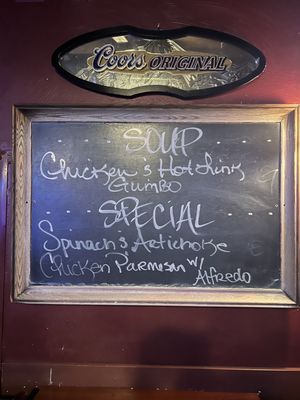 Coors ORIGINAL
SOUP
Chicken & Hot Link
GUMBO
SPECIAL
Spinach & Artichoke
Chicken Parmesan w/
Alfredo